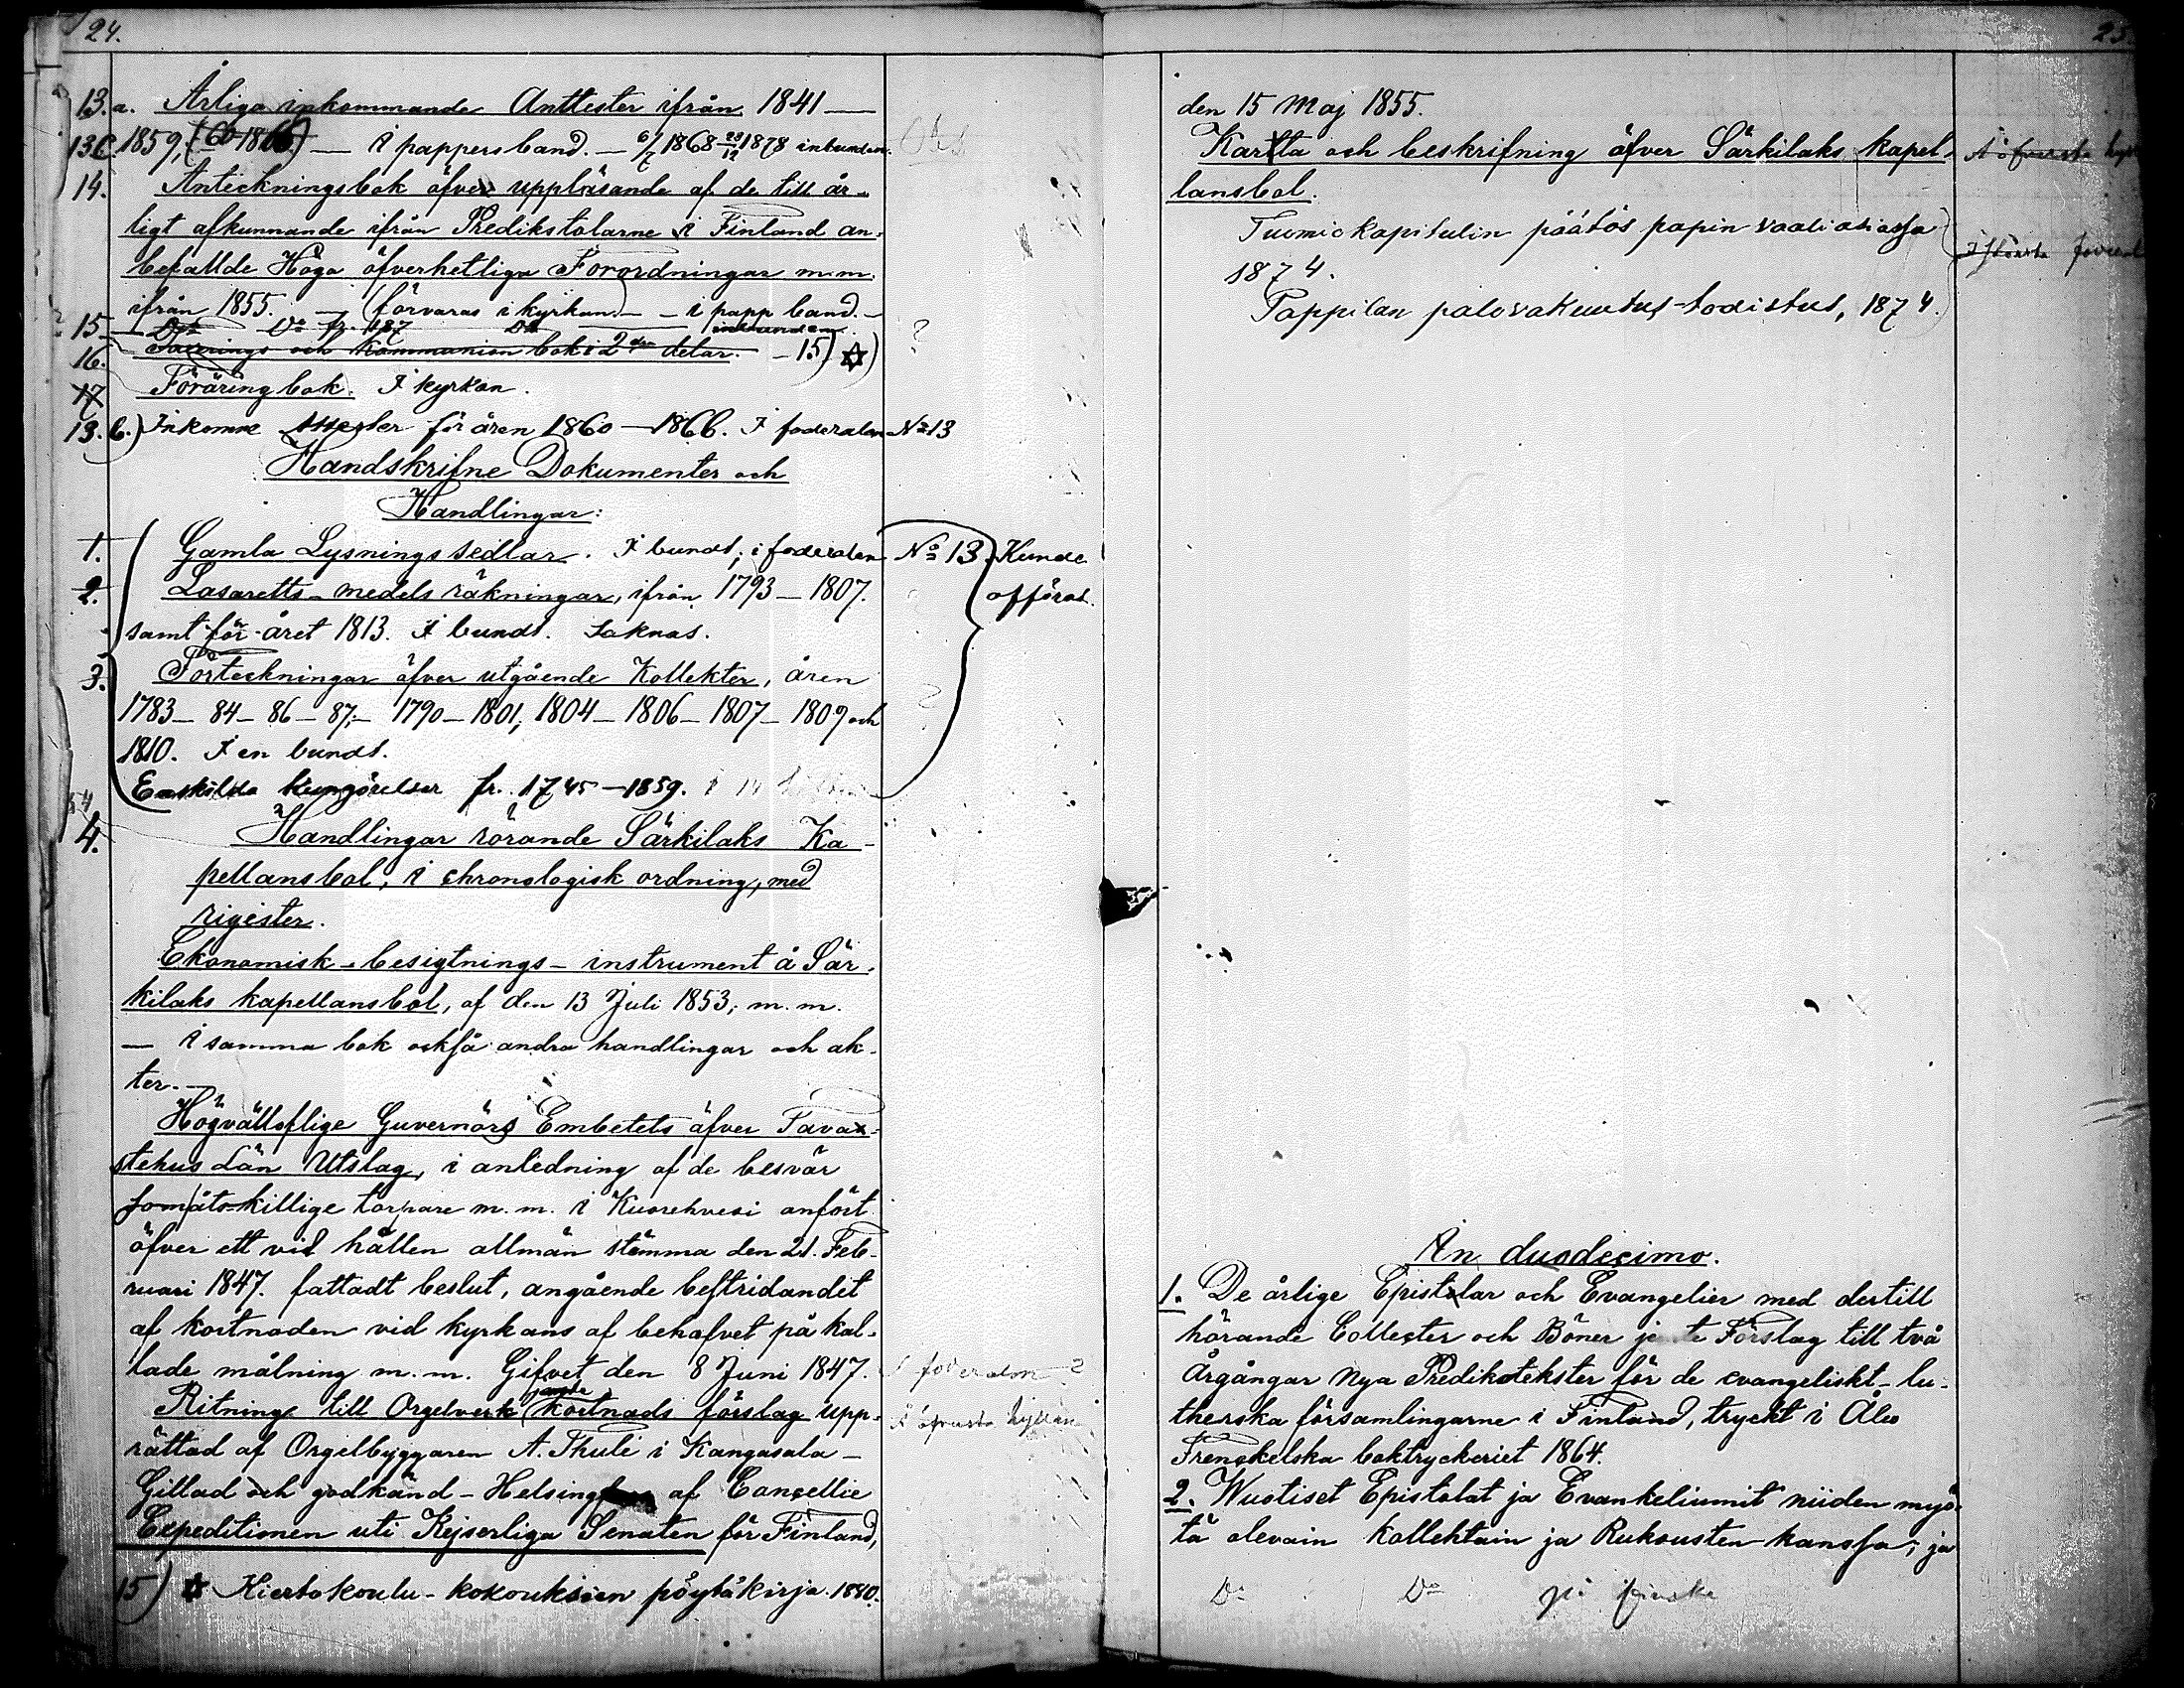 24.
13.a. Årliga inkommande Anttester ifrån 1841 —
13.C. 1859, (60 1866) — i pappersband. — 6/7 1868 23/12 1878 inbunden.
14. Anteckningsbok öfver uppläsande af de till år-
ligt afkunnande ifrån Predikstolarne i Finland an-
befallde Höga öfverhetliga Forordningar m.m.
ifrån 1855. — (förvaras i kyrkan) — i papp band. —
15 — Do Do fr. 187 Do inbundem. ?
16. och Kommunion bok i 2ne delar. — 15) ✡)
17 Föräring bok. I kyrkan.
13. b.) Inkomne Attester för åren 1860 — 1866. I foderalen No 13
Handskrifne Dokumenter och
Handlingar:
1. Gamla Lysningssedlar. I bundt; i foderalen No 13 Kunde
2. Lasaretts-medels räkningar, ifrån 1793 — 1807. afföras.
samt för året 1813. I bundt. Saknas.
3. Förteckningar öfver utgående Kollekter, åren
1783 — 84 — 86 — 87; — 1790 — 1801; 1804 — 1806 — 1807 — 1809 och
1810. I en bundt.
Enskilda kungörelser fr. 1745 — 1859.
4. Handlingar rörande Särkilaks Ka-
pellansbol, i chronologisk ordning, med
rigister.
Ekonomisk-besigtnings-instrument å Sär-
kilaks kapellansbol, af den 13 Juli 1853, m.m.
— i samma bok också andra handlingar och ak-
ter. —
Högvällofliga Guvernörs Embetets öfver Tava-
stehus Län Utslag, i anledning af de besvär
som åtskillige torpare m.m. i Kuorehvesi anfört
öfver ett vid hållen allmän stämma den 21. Feb-
ruari 1847. fattadt beslut, angående bestridandet
af kostnaden vid kyrkans af behofvet på kal-
lade målning m.m. Gifvet den 8 Juni 1847. I foderalen ?
Ritning till Orgelverk jemte kostnads förslag upp- I öfversta hyllan
rättad af Orgelbyggaren A. Thulé i Kangasala —
Gillad och godkänd — af Cansellie
Expeditionen uti Kejserliga Senaten för Finland,
15) ✡ Kiertokoulu-kokouksien pöytäkirja. 1890.
25
den 15 Maj 1855.
Kartta och beskrifning öfver Särkilaks kapel- I öfversta
lansbol.
Tuomiokapitulin päätös papin vaaliasiassa
1874.
Pappilan palovakuutus-todistus, 1874.
In duodecimo.
1. De årlige Epistolar och Evangelier med dertill
hörande Collecter och Böner jemte Förslag till två
Årgångar nya Predikotekster för de evangeliskt-lu-
therska församlingarne i Finland, tryckt i Åbo
Frenckelska boktryckeriet 1864.
2. Wuotiset Epistolat ja Evankeliumit niiden myö-
tä olevain Kollehtain ja Rukousten kanssa; ja
Do Do på finska